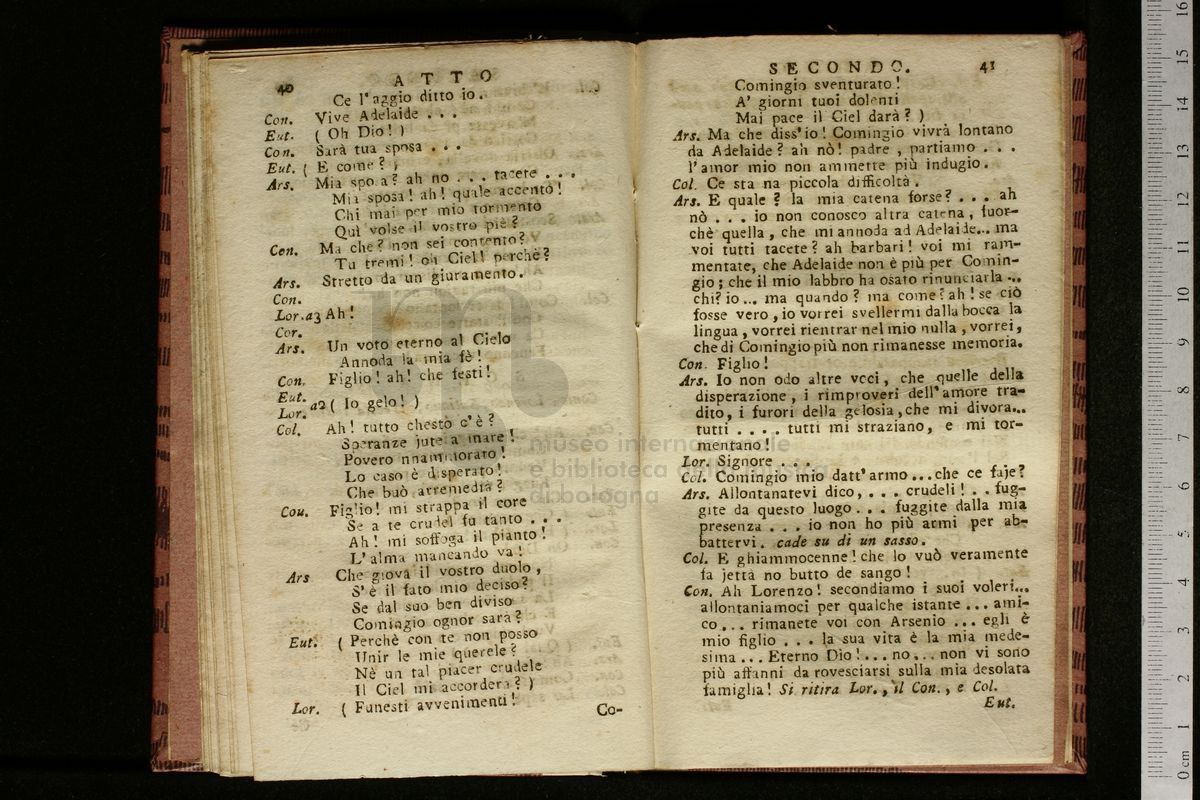 40 ATTO
Ce l'aggio ditto io.
Con. Vive Adelaide . . .
Eut. ( Oh Dio! )
Con. Sarà tua sposa . . .
Eut. ( E come? )
Ars. Mia sposa? ah no . . . tacete . . .
Mia sposa! ah! quale accento!
Chi mai per mio tormento
Quì volse il vostro piè?
Con. Ma che? non sei contento?
Tu tremi! oh Ciel! perchè?
Ars. Stretto da un giuramento.
Con.
Lor. a3 Ah!
Cor.
Ars. Un voto eterno al Cielo
Annoda la mia fè!
Con. Figlio! ah! che festi!
Eut.
Lor. a2 ( Io gelo! )
Col. Ah! tutto chesto c'è?
Speranze jute a mare!
Povero nnammorato!
Lo caso è disperato!
Che buò arremedià?
Cou. Figlio! mi strappa il core
Se a te crudel fu tanto . . .
Ah! mi soffoga il pianto!
L'alma mancando va!
Ars Che giova il vostro duolo,
S'è il fato mio deciso?
Se dal suo ben diviso
Comingio ognor sarà?
Eut. ( Perchè con te non posso
Unir le mie querele?
Nè un tal piacer crudele
Il Ciel mi accorderà? )
Lor. ( Funesti avvenimenti!
Co-
SECONDO. 41
Comingio sventurato!
A' giorni tuoi dolenti
Mai pace il Ciel darà? )
Ars. Ma che diss'io! Comingio vivrà lontano
da Adelaide? ah nò! padre, partiamo . . .
l'amor mio non ammette più indugio.
Col. Ce sta na piccola difficoltà.
Ars. E quale? la mia catena forse? . . . ah
nò . . . io non conosco altra catena, fuor-
chè quella, che mi annoda ad Adelaide... ma
voi tutti tacete? ah barbari! voi mi ram-
mentate, che Adelaide non è più per Comin-
gio; che il mio labbro ha osato rinunciarla ...
chi? io ... ma quando? ma come? ah! se ciò
fosse vero, io vorrei svellermi dalla bocca la
lingua, vorrei rientrar nel mio nulla, vorrei,
che di Comingio più non rimanesse memoria.
Con. Figlio!
Ars. Io non odo altre voci, che quelle della
disperazione, i rimproveri dell'amore tra-
dito, i furori della gelosia, che mi divora...
tutti . . . . tutti mi straziano, e mi tor-
mentano!
Lor. Signore . . .
Col. Comingio mio datt'armo ... che ce faje?
Ars. Allontanatevi dico, . . . crudeli! . . fug-
gite da questo luogo . . . fuggite dalla mia
presenza . . . io non ho più armi per ab-
battervi. cade su di un sasso.
Col. E ghiammocenne! che lo vuò veramente
fa jettà no butto de sango!
Con. Ah Lorenzo! secondiamo i suoi voleri...
allontaniamoci per qualche istante ... ami-
co ... rimanete voi con Arsenio ... egli è
mio figlio . . . la sua vita è la mia mede-
sima ... Eterno Dio! ... no ... non vi sono
più affanni da rovesciarsi sulla mia desolata
famiglia! Si ritira Lor., il Con., e Col.
Eut.
museo internazionale
e biblioteca della musica
di bologna
0 cm 1 2 3 4 5 6 7 8 9 10 11 12 13 14 15 16